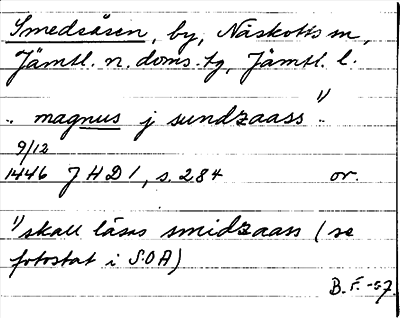 Smedsåsen, by, Näskotts sn,
Jämtl. n. doms. tg, Jämtl. l.
.. magnus j sundzaass 1) ..
9/12
1446 JHD 1, s. 284 or.
1) skall läsas smidzaass (se
fotostat i SOA)
B. F. -57.